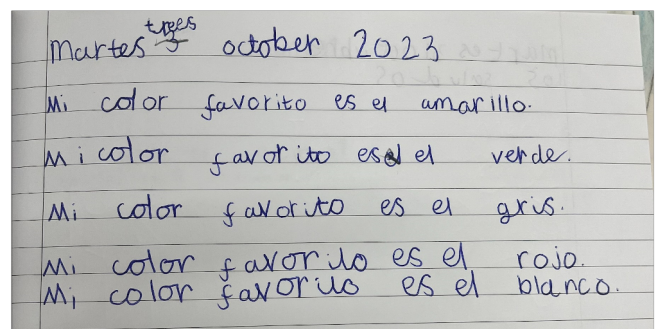 trees
martes 3 october 2023
Mi color favorito es el amarillo.
Mi color favorito es el verde.
Mi color favorito es el gris.
Mi color favorito es el rojo.
Mi color favorito es el blanco.